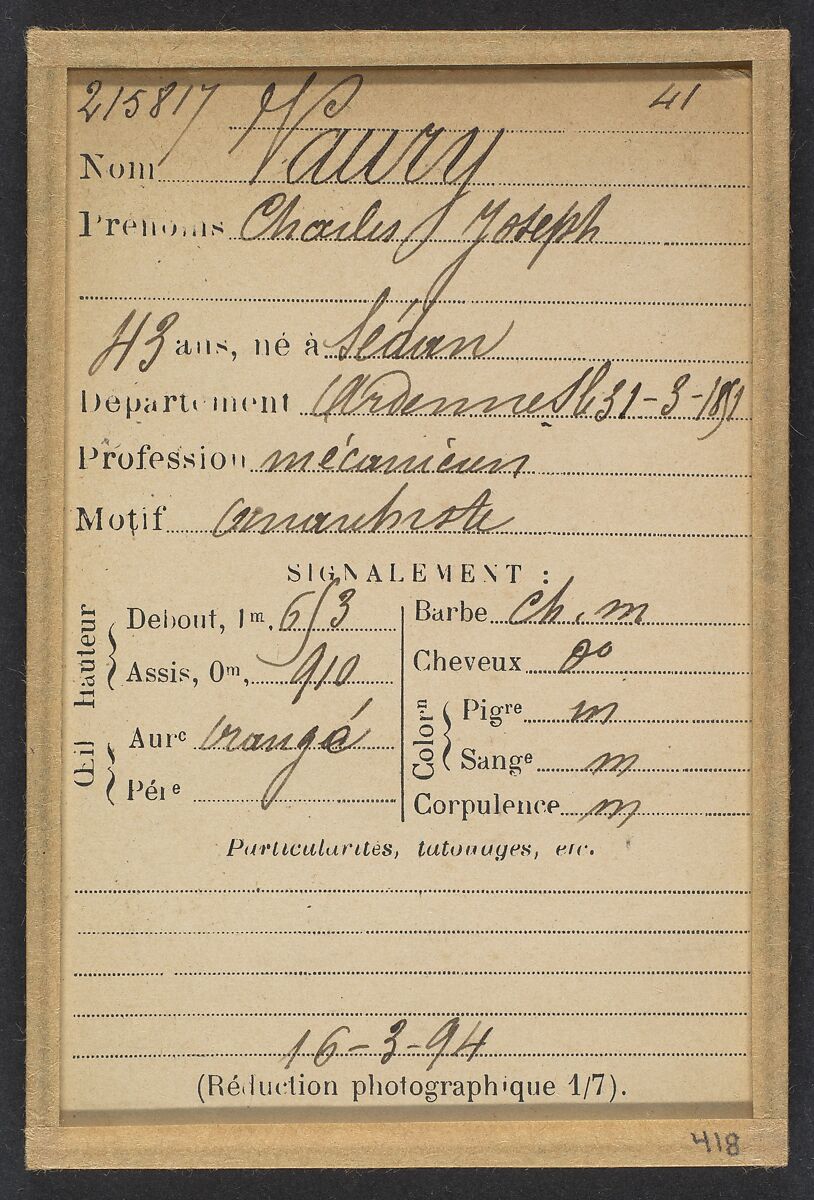 215817 41
Nom Vaury
Prénoms Charles Joseph
43 ans, né à Sédan
Département Ardennes 31-3-1851
Profession mécanicien
Motif anarchiste
SIGNALEMENT :
Hauteur
Debout, 1m, 653
Assis, 0m, 910
Œil
Aure orangé
Pére
Barbe ch. m
Cheveux do
Colorn
Pigre m
Sange m
Corpulence m
Particularités, tatouages, etc.
16-3-94
(Réduction photographique 1/7).
418